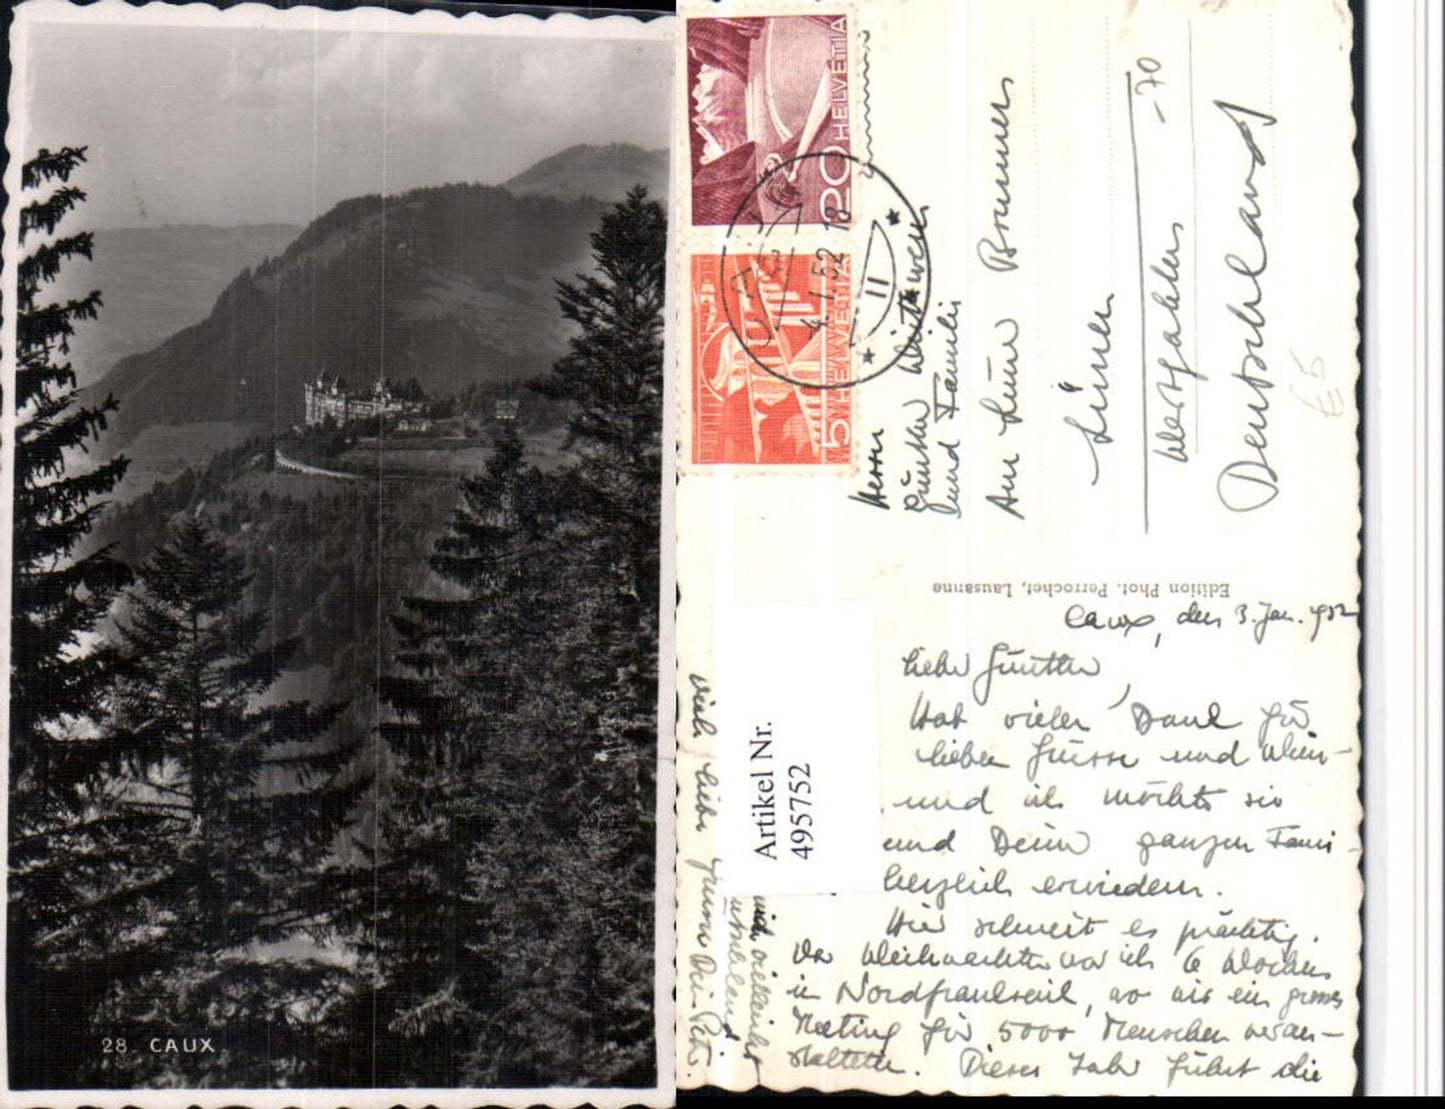 28 CAUX
HELVETIA 20
HELVETIA 5
CAUX
4.1.52 18
II
Herrn
Günther
und Familie
Am Brunnen
Lünen
Westfalen
-70
Deutschland
E5
Edition Phot. Perrochet, Lausanne
Artikel Nr.
495752
Caux, den 3. Jan. 952
Lieber Günther,
Hab vielen Dank für
lieben Grüsse und Wün-
und ich möchte sie
und Deiner ganzen Fami
herzlich erwiedern.
Hier schneit es prächtig.
Vor Weihnachten war ich 6 Wochen
in Nordfrankreich, wo wir ein grosses
Meeting für 5000 Menschen veran-
stalteten. Dieses Jahr führt die
mich vielleicht
Viele liebe Grüsse Dein